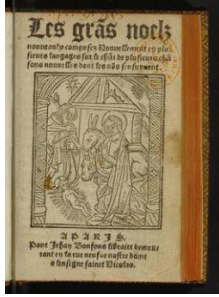 Les grãs noelz
nouueaulx composez nouuellement en plu
sieurs langages sur le chãt de plusieurs chã
sons nouuelles dont les nõs sensuyuent.
A PARIS.
Pour Jehan Bonfons libraire demou
rant en la rue neufue nostre dame
a lenseigne sainct Nicolas.